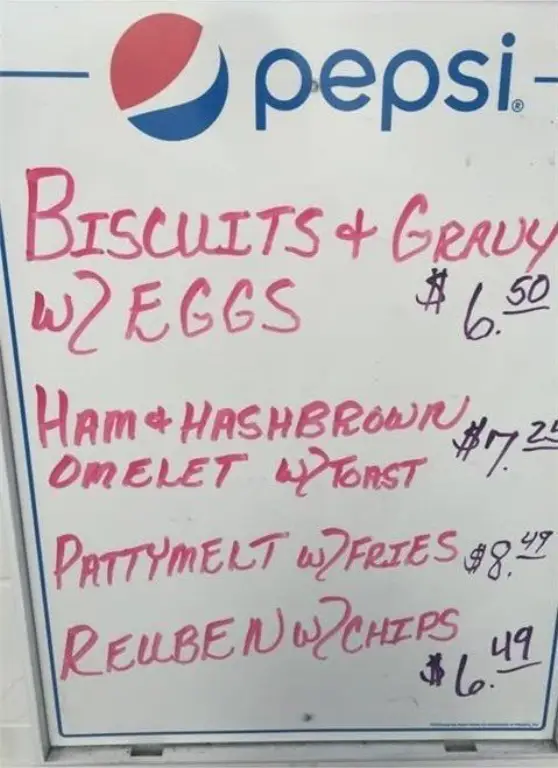 pepsi®
BISCUITS & GRAVY
W/ EGGS $6.50
HAM & HASHBROWN
OMELET W/ TOAST $7.25
PATTYMELT W/ FRIES $8.49
REUBEN W/ CHIPS
$6.49